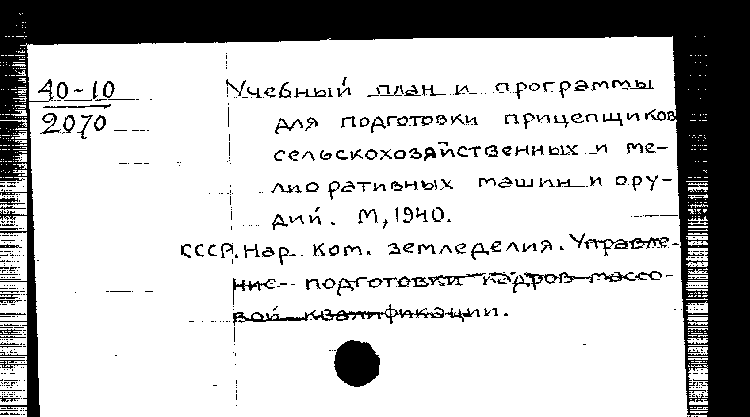 40-10
2070
Учебный план и программы
для подготовки прицепщиков
сельскохозяйственных и ме-
лиоративных машин и ору-
дий. М, 1940.
СССР. Нар. Ком. земледелия. Управле-
ние подготовки кадров массо-
вой квалификации.